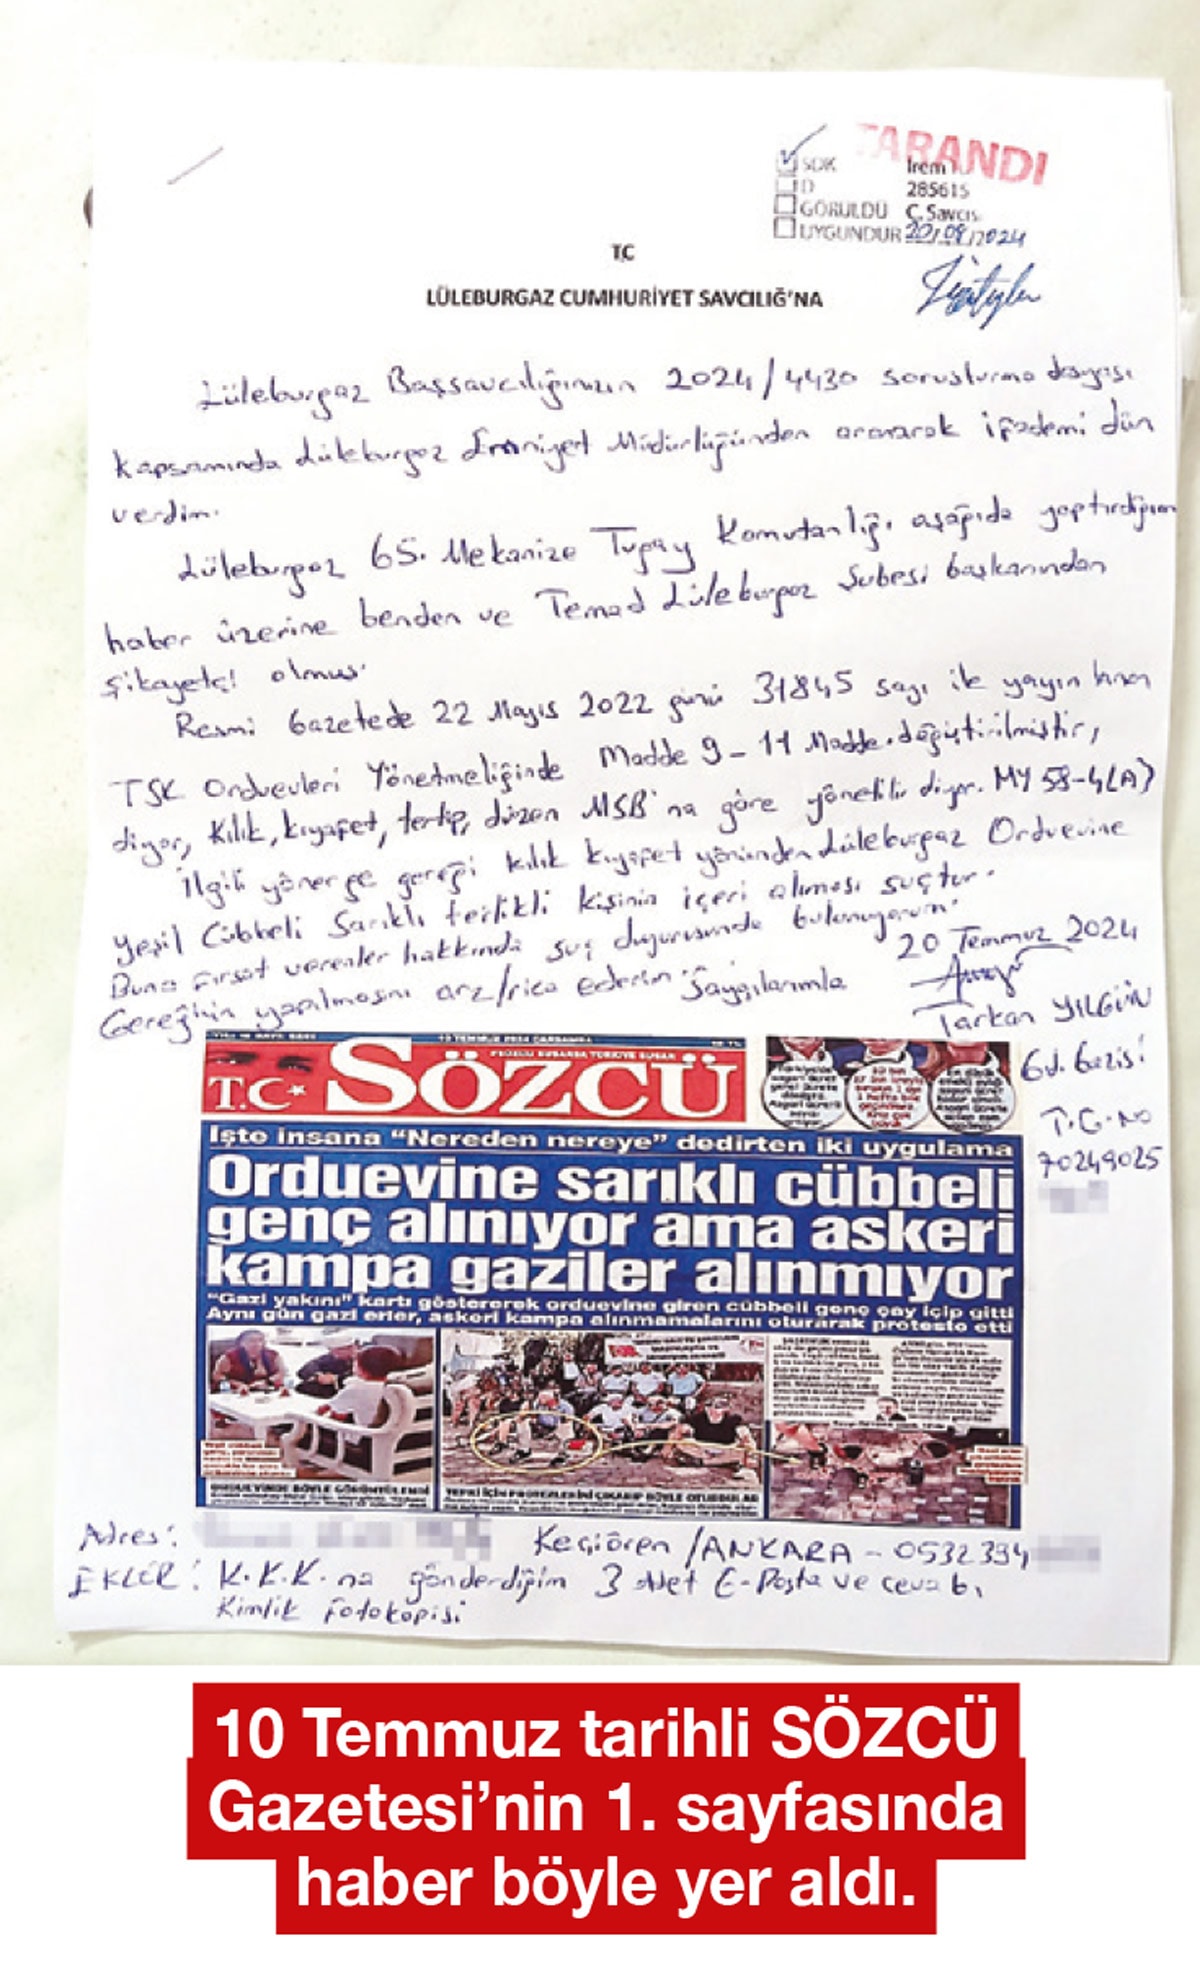 TARANDI
SDK İrem
D 285615
GÖRÜLDÜ C. Savcıs.
UYGUNDUR 20/09/2024
T.C
LÜLEBURGAZ CUMHURİYET SAVCILIĞ'NA
Lüleburgaz Başsavcılığınızın 2024/4430 soruşturma dosyası
kapsamında Lüleburgaz Emniyet Müdürlüğünden aranarak ifademi dün
verdim.
Lüleburgaz 65. Mekanize Tugay Komutanlığı aşağıda yaptırdığım
haber üzerine benden ve Temad Lüleburgaz Şubesi başkanından
şikayetçi olmuş.
Resmi Gazetede 22 Mayıs 2022 günü 31845 sayı ile yayınlanan
TSK Orduevleri Yönetmeliğinde Madde 9-11 Madde. değiştirilmiştir,
diyor, Kılık, kıyafet, tertip, düzen MSB'na göre yönetilir diyor. MY 58-4(A)
İlgili yönerge gereği kılık kıyafet yönünden Lüleburgaz Orduevine
yeşil Cübbeli Sarıklı terlikli kişinin içeri alınması suçtur.
Buna fırsat verenler hakkında suç duyurusunda bulunuyorum.
20 Temmuz 2024
Gereğinin yapılmasını arz/rica ederim Saygılarımla
Tarkan YILGÜN
Gd. Gazisi
T.C. No
70249025
T.C SÖZCÜ
İşte insana “Nereden nereye” dedirten iki uygulama
Orduevine sarıklı cübbeli
genç alınıyor ama askeri
kampa gaziler alınmıyor
“Gazi yakını” kartı göstererek orduevine giren cübbeli genç çay içip gitti
Aynı gün gazi erler, askeri kampa alınmamalarını oturarak protesto etti
ORDUEVİNDE BÖYLE GÖRÜNTÜLENDİ
TEPKİ İÇİN PROTEZLERİNİ ÇIKARIP BÖYLE OTURDULAR
Adres: Keçiören /ANKARA - 0532 394
EKLER: K.K.K. na gönderdiğim 3 adet E-Posta ve cevabı
Kimlik Fotokopisi
10 Temmuz tarihli SÖZCÜ
Gazetesi’nin 1. sayfasında
haber böyle yer aldı.